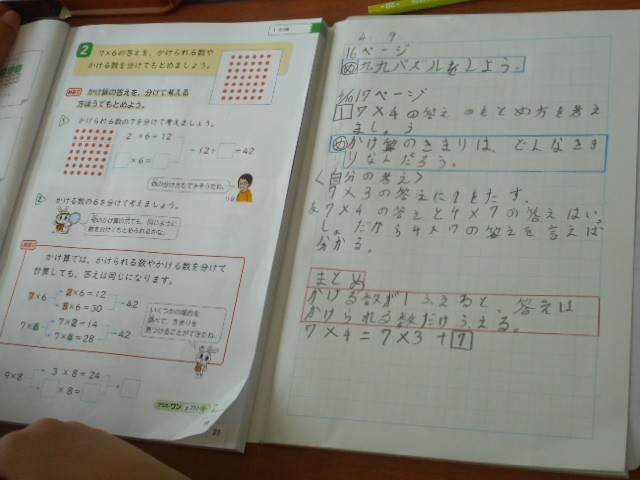 2
7×6の答えを、かけられる数や
かける数を分けてもとめましょう。
かけ算の答えを、分けて考える
方ほうでもとめよう。
1 かけられる数の7を分けて考えましょう。
2 ×6=12
×6=
12+ =42
2 かける数の6を分けて考えましょう。
かけ算では、かけられる数やかける数を分けて
計算しても、答えは同じになります。
7×6
2×6=12
5×6=30
42
7×6
7×2=14
7×4=28
42
いくつかの場合を
調べて、きまりを
見つけることができたね。
9×8
3×8=24
×8=
21
4 9
16ページ
め 九九パズルをしよう。
4/10 17ページ
1 7×4の答えのもとめ方を考え
ましょう
め かけ算のきまりは、どんなきま
りなんだろう。
〈自分の考え〉
7×3の答えに7をたす。
7×4の答えと4×7の答えはい。
しょ。だから4×7の答えを言えば
分かる。
まとめ
かける数が1ふえると、答えは
かけられる数だけふえる。
7×4=7×3+7